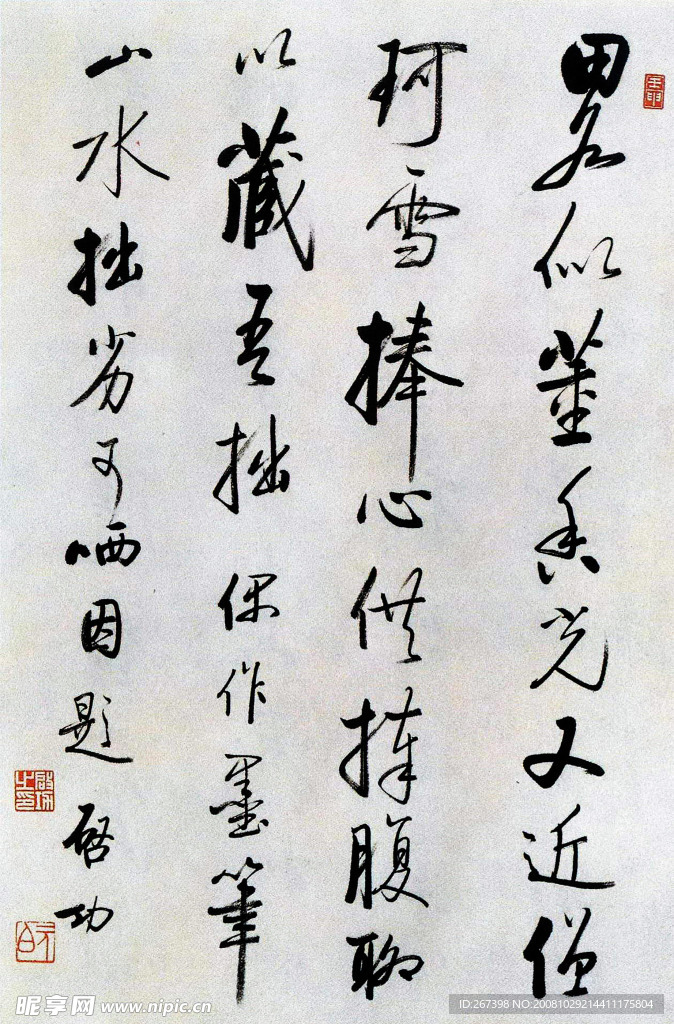 畧似董香光又近僧
珂雪捧心供捧腹聊
以藏吾拙 偶作墨筆
山水拙劣可哂因題
啓功
啟功之印
元白
昵享网 www.nipic.cn
ID:267398 NO:20081029214411175804